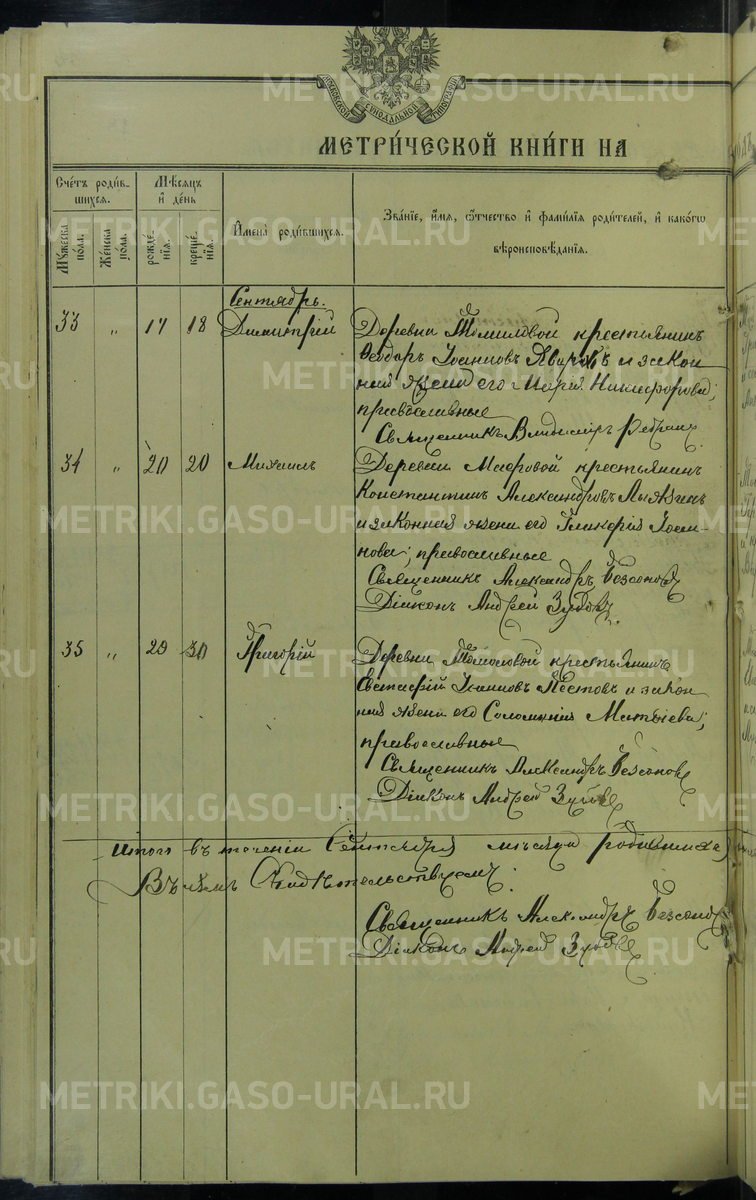 МОСКОВСКОЙ СѴНОДАЛЬНОЙ ТИПОГРАФІИ
МЕТРИ́ЧЕСКОЙ КНИ́ГИ НА
Сче́тъ роди́вшихся.
Мѣ́сяцъ и҆ де́нь
Мꙋ́жеска по́ла.
Же́нска по́ла.
рожде́нїѧ.
креще́нїѧ.
И҆мена̀ роди́вшихсѧ.
Зва́нїе, и҆́мѧ, ѻ҆́тчество и҆ фами́лїѧ роди́телей, и҆ како́гѡ вѣроисповѣ́данїѧ.
Сентябрь.
33 „ 17 18 Димитрій
Деревни Томиловой крестьянинъ
Ѳеодоръ Іоанновъ и закон
ная жена его Марія Никифорова;
православные
Священникъ Владиміръ
34 „ 20 20 Михаилъ
Деревни крестьянинъ
Константинъ Александровъ
и законная жена его Гликерія Іоан-
нова; православные
Священникъ Александръ Безсоновъ
Діаконъ Андрей Зубовъ
35 „ 29 30 Григорій
Деревни крестьянинъ
Евстафій Іоанновъ Пестовъ и закон
ная жена его Соломанія Матѳіева;
православные
Священникъ Александръ Безсоновъ
Діаконъ Андрей Зубовъ
Итого въ теченіи Сентября мѣсяца родившихся
Въ чемъ свидѣтельствуемъ:
Священникъ Александръ Безсоновъ
Діаконъ Андрей Зубовъ
METRIKI.GASO-URAL.RU